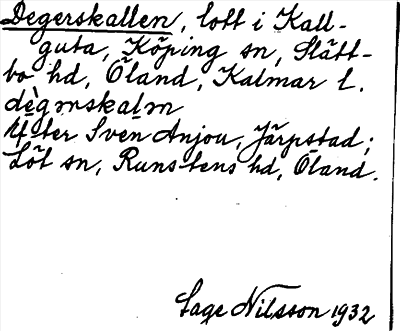 Degerskallen, lott i Kall-
guta, Köping sn, Slätt-
bo hd, Öland, Kalmar l.
dègərskalən
Efter Sven Anjou, Järpstad;
Löt sn, Runstens hd, Öland.
Sage Nilsson 1932